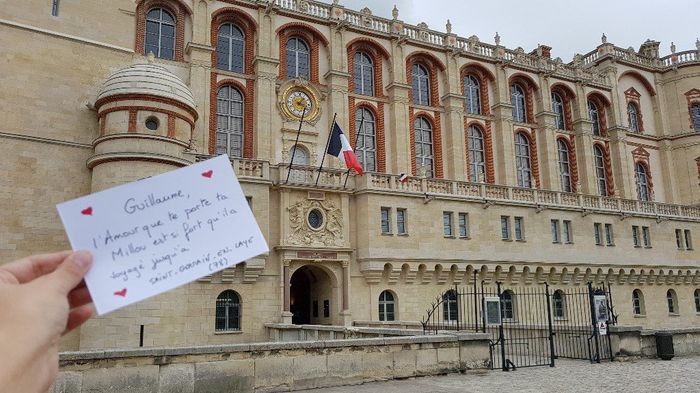 Guillaume,
l'Amour que te porte ta
Millou est si fort qu'il a
voyagé jusqu'à
SAINT-GERMAIN-EN-LAYE
(78)